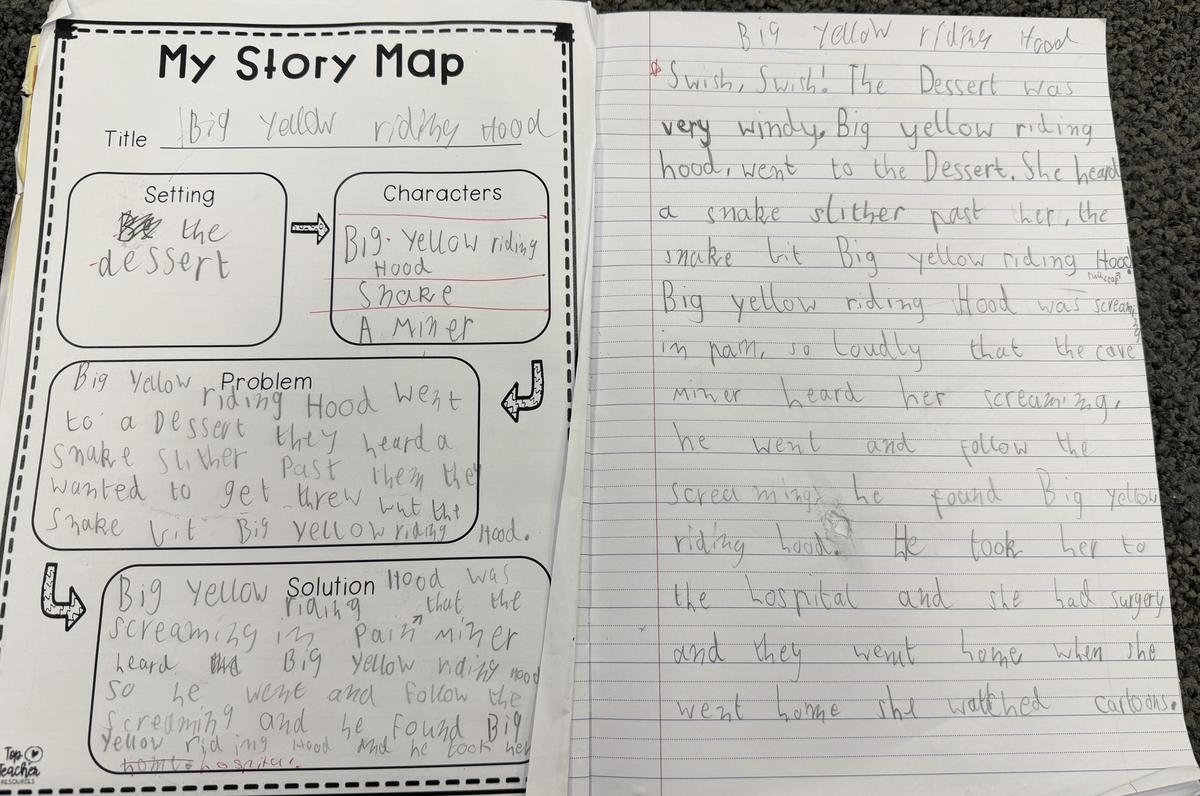 My Story Map
Title Big Yellow riding Hood
Setting
the
dessert
Characters
Big Yellow riding
Hood
Snake
A Miner
Problem
Big Yellow riding Hood went
to a Dessert they heard a
snake slither Past them they
wanted to get threw but the
snake bit Big Yellow riding Hood.
Solution
Big Yellow riding Hood was
screaming in Pain that the miner
heard Big Yellow riding Hood
so he went and Follow the
screaming and he Found Big
Yellow riding Hood And he took her
home hospital.
Top Teacher
RESOURCES
Big Yellow riding Hood
Swish, Swish! The Dessert was
very windy. Big yellow riding
hood, went to the Dessert. She heard
a snake slither past her, the
snake bit Big yellow riding Hood
Big yellow riding Hood was scream
in pam, so loudly that the cave
miner heard her screaming,
he went and follow the
screaming he found Big yellow
riding hood. He took her to
the hospital and she had surgery
and they went home when she
went home she watched cartoons.